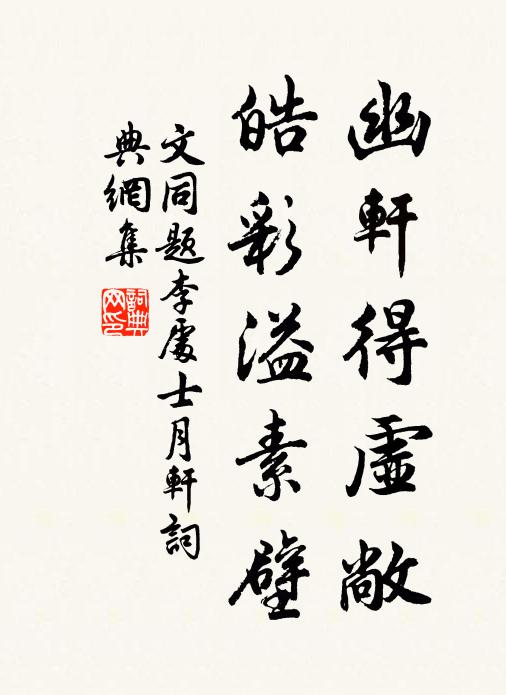 幽軒得虛敞
皓彩溢素壁
文同題李處士月軒詞
典網集
詞典網印